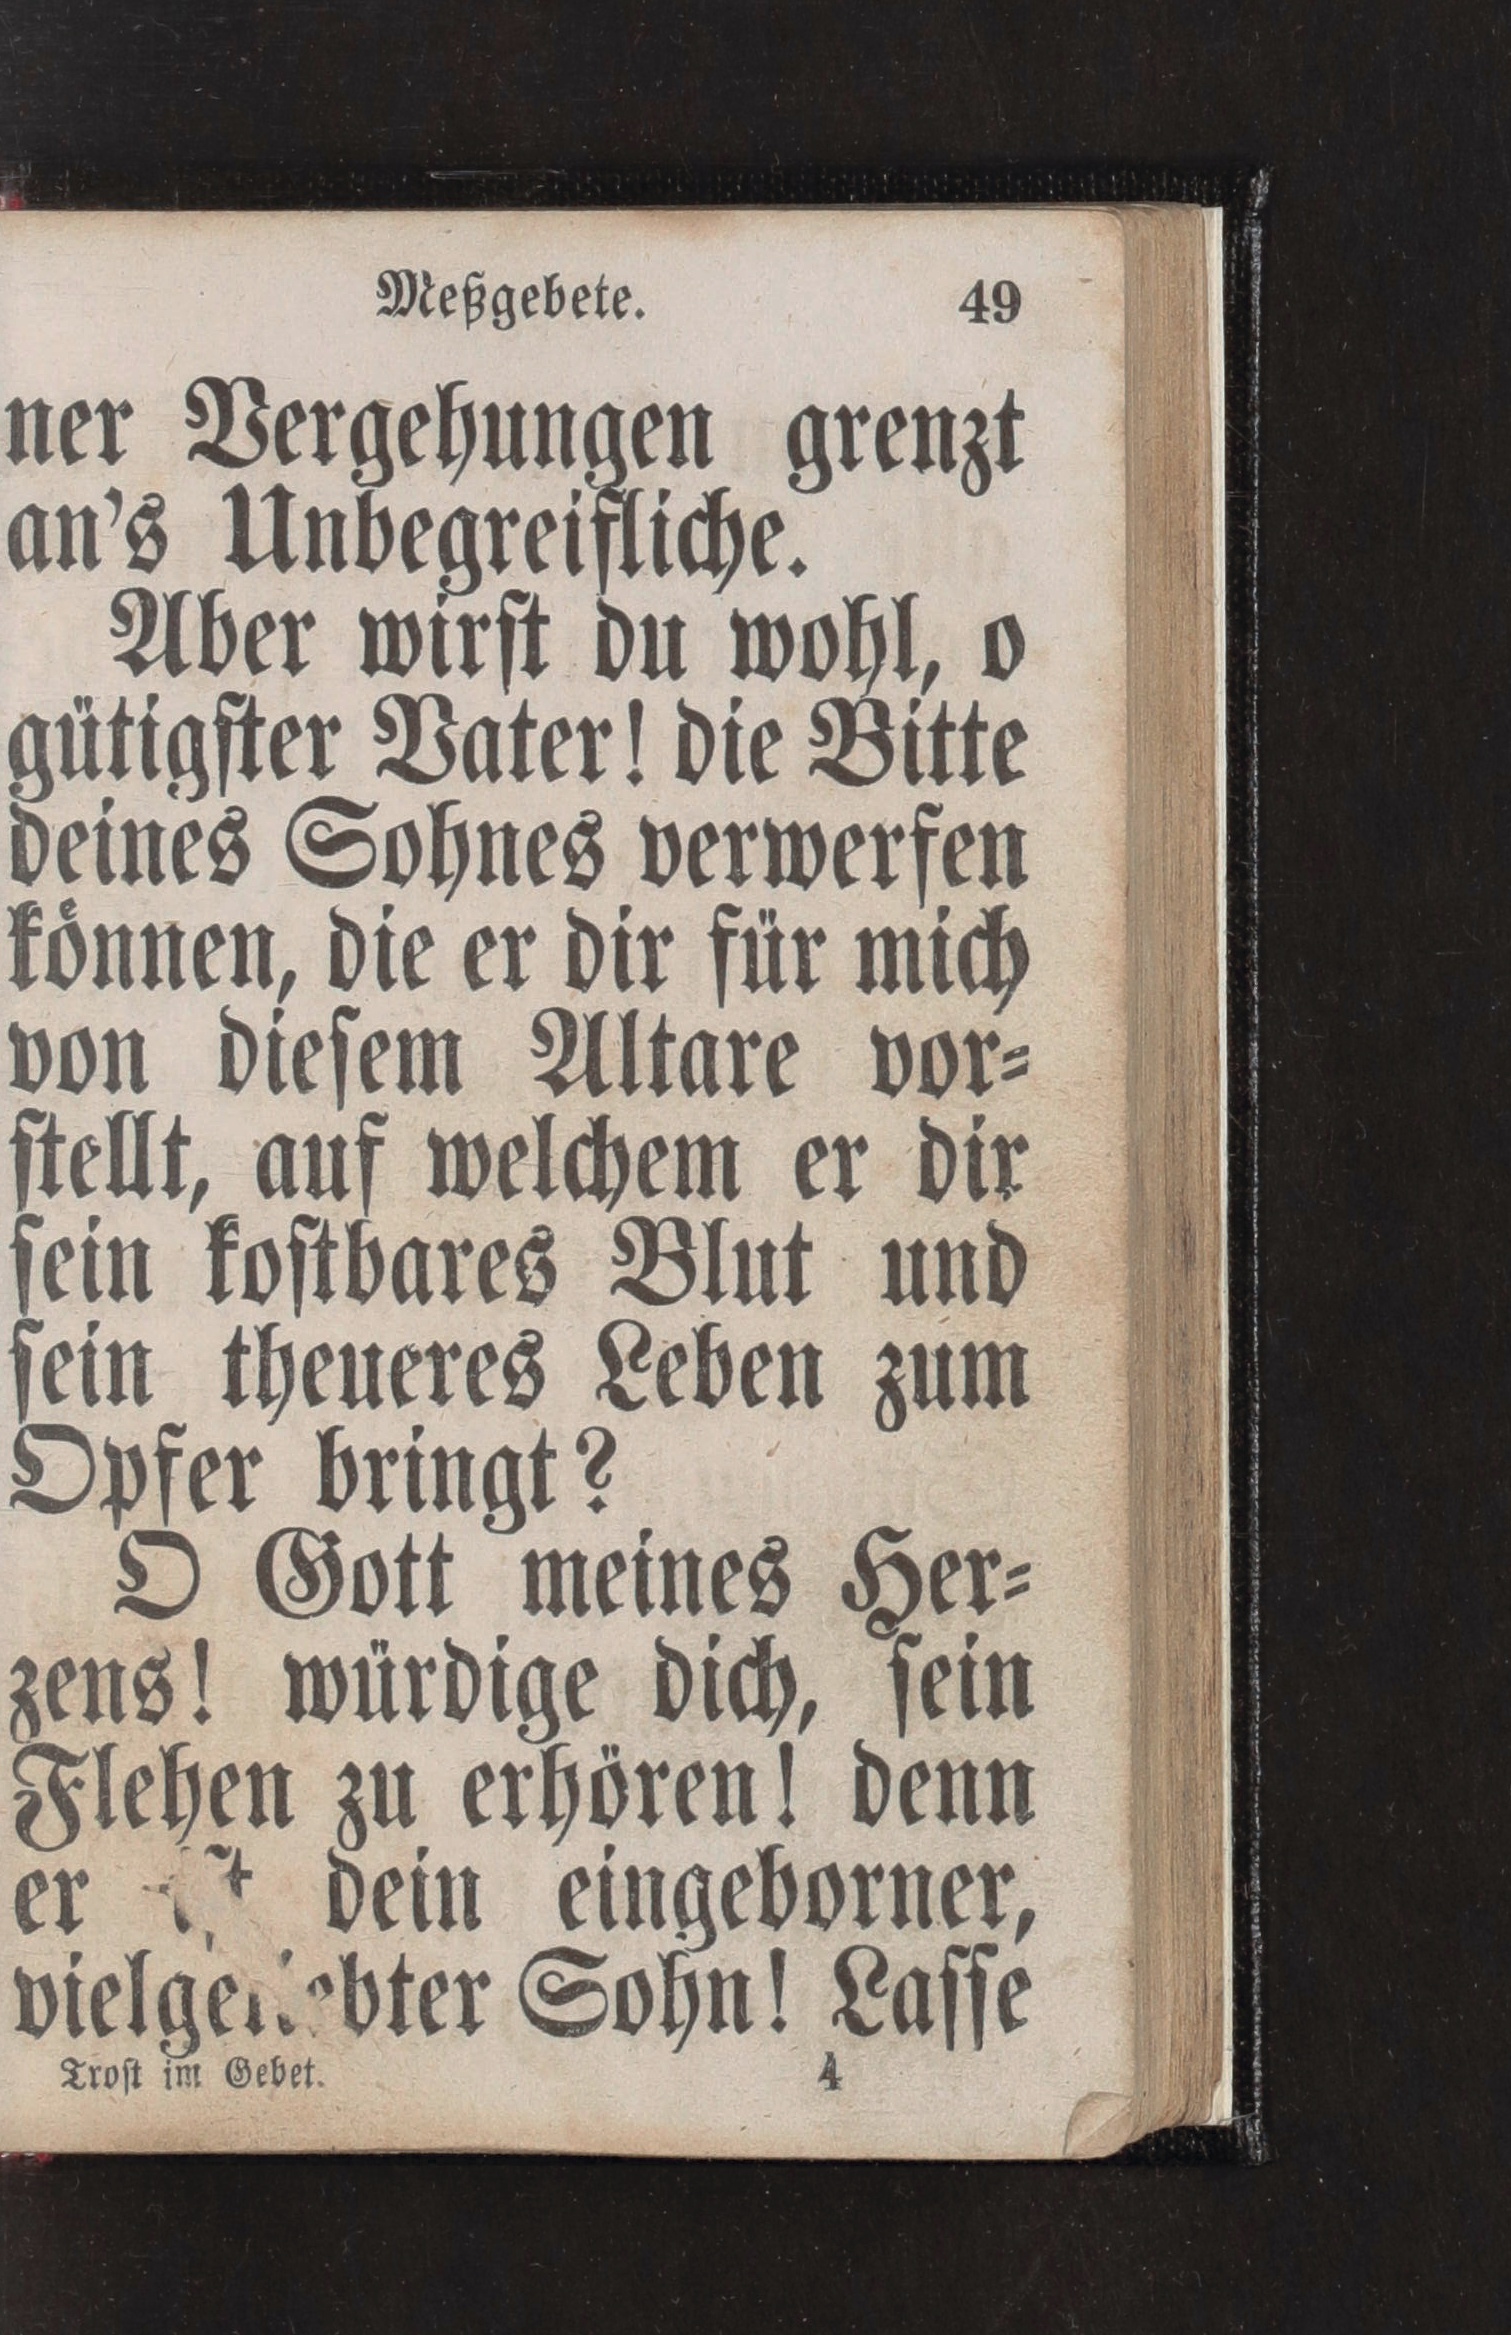 Meßgebete. 49
ner Vergehungen grenzt
an's Unbegreifliche.
Aber wirst du wohl, o
gütigster Vater! die Bitte
deines Sohnes verwerfen
können, die er dir für mich
von diesem Altare vor=
stellt, auf welchem er dir
sein kostbares Blut und
sein theueres Leben zum
Opfer bringt?
O Gott meines Her=
zens! würdige dich, sein
Flehen zu erhören! denn
er ist dein eingeborner,
vielgeliebter Sohn! Lasse
Trost im Gebet. 4